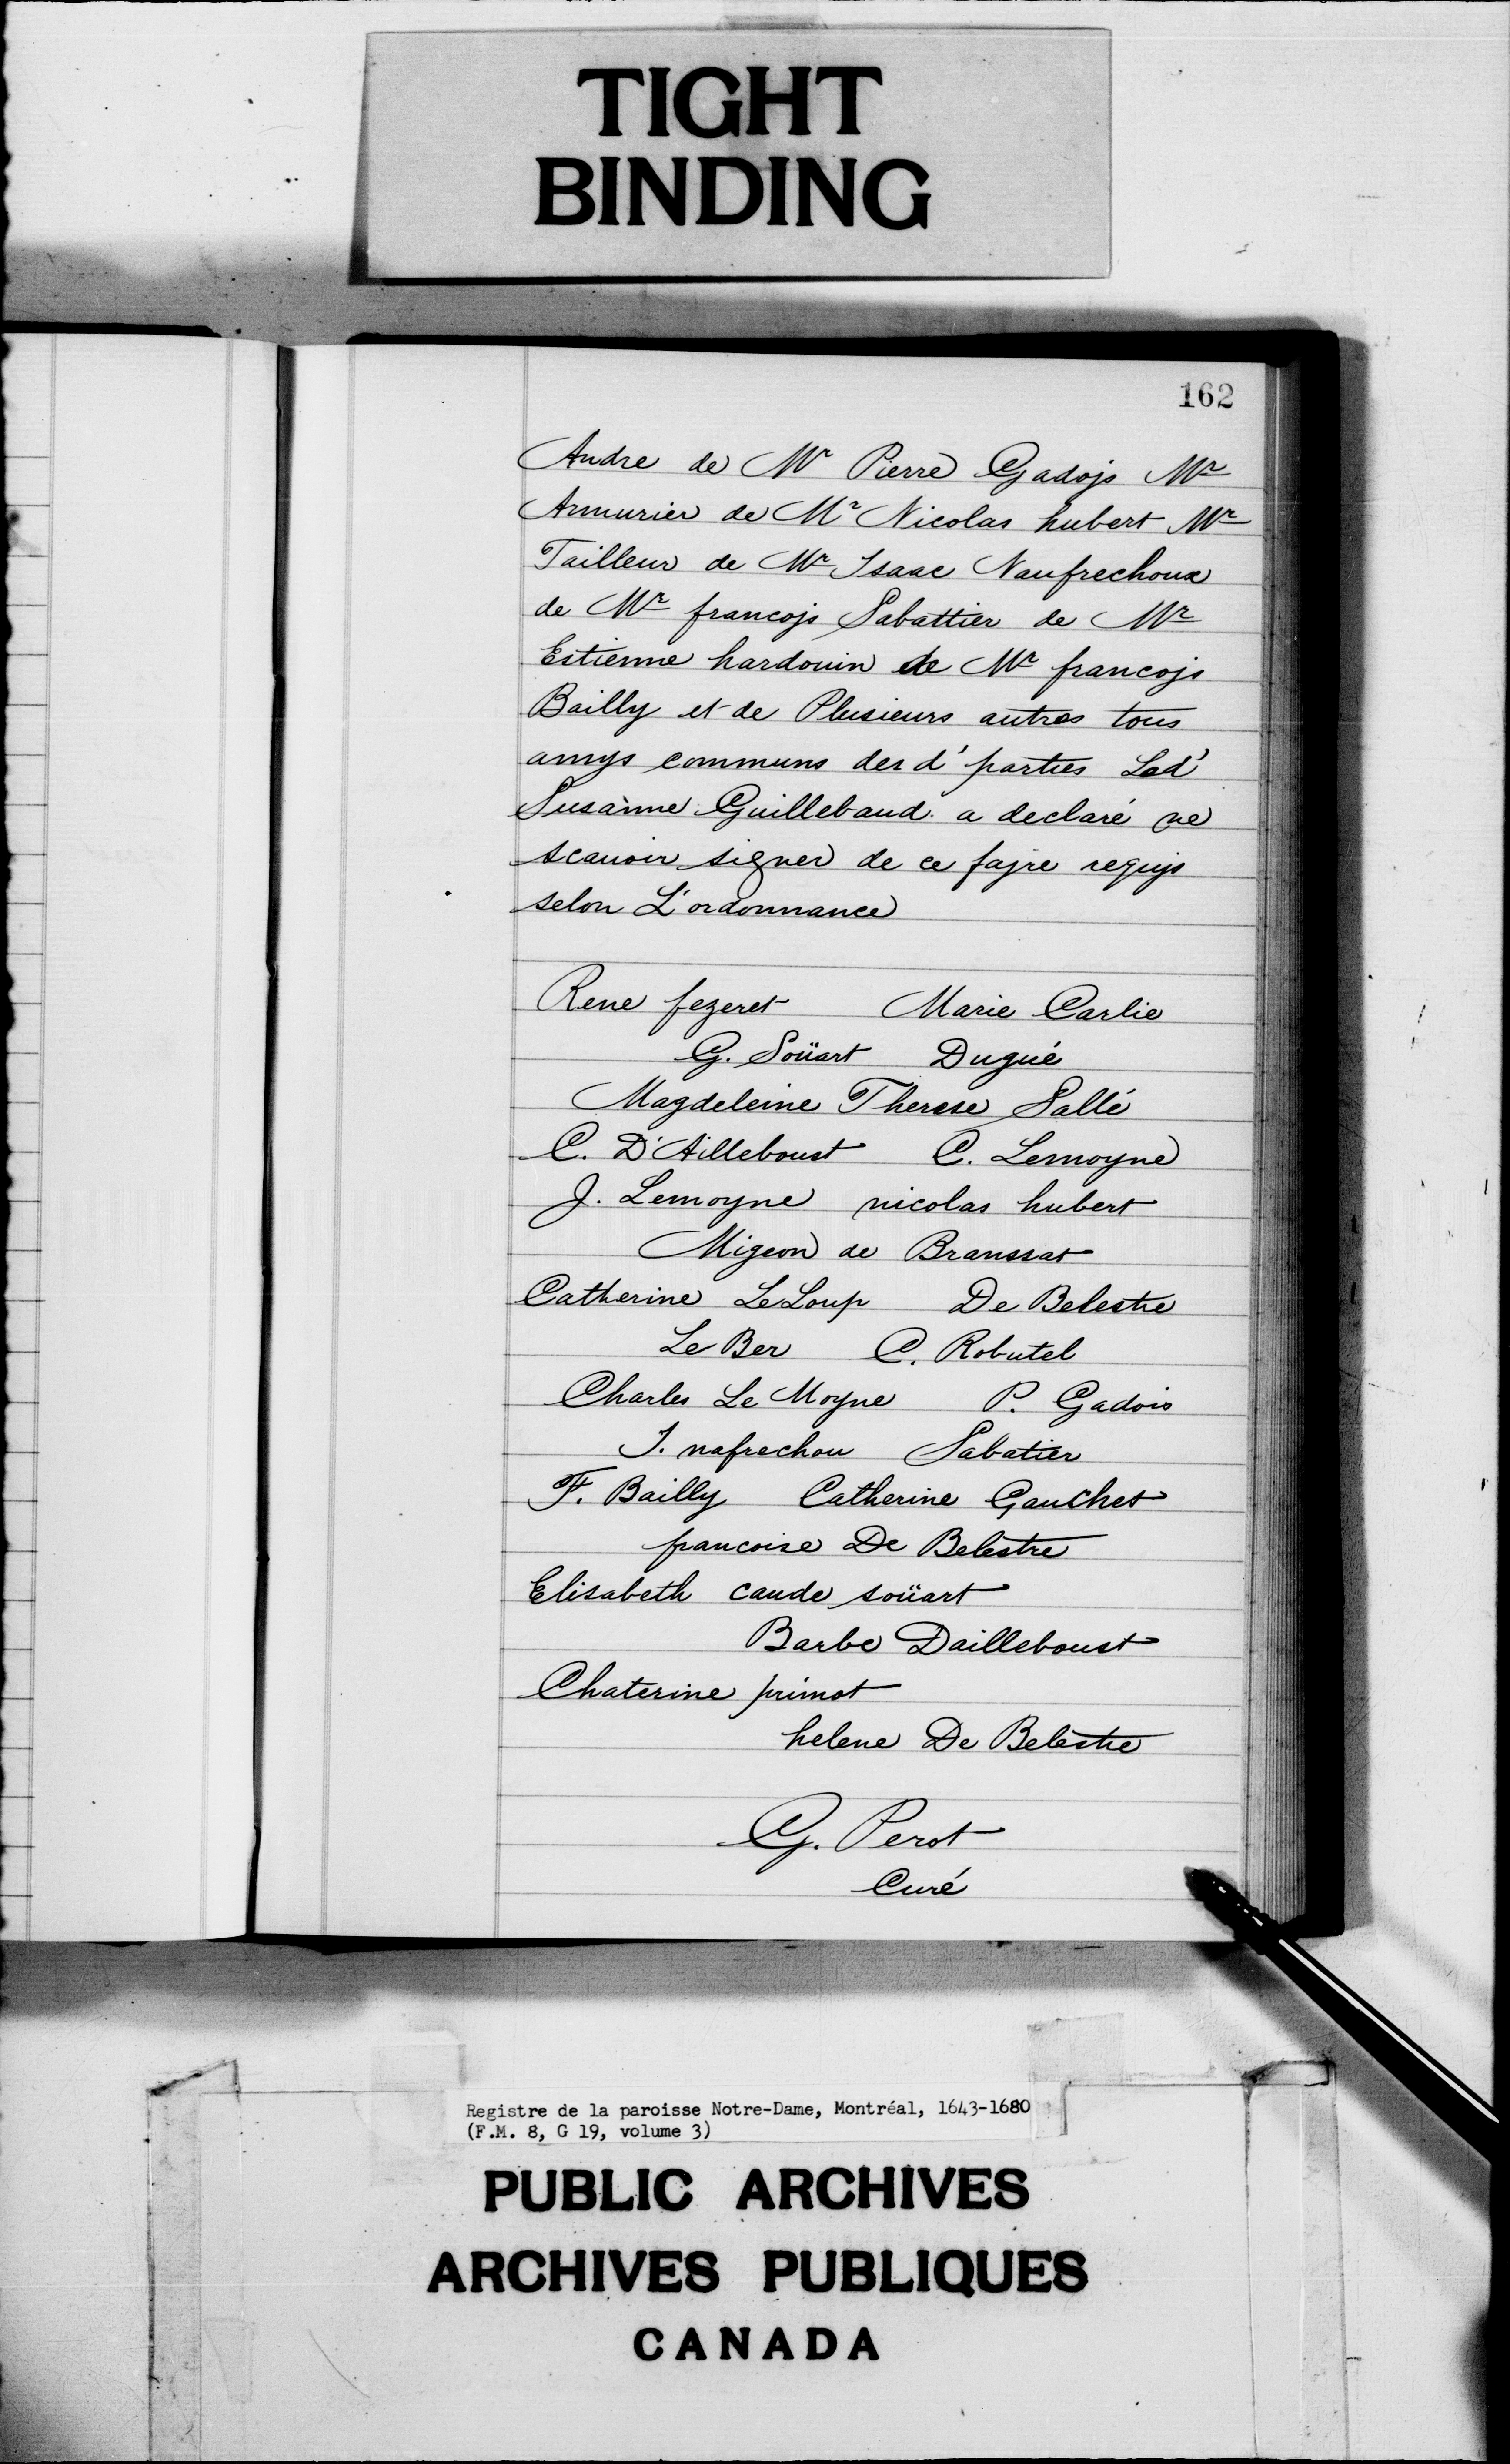 TIGHT
BINDING
162
Andre de Mr Pierre Gadojs Mr
Armurier de Mr Nicolas hubert Mr
Tailleur de Mr Isaac Naufrechoux
de Mr francojs Sabattier de Mr
Estienne hardouin de Mr francojs
Bailly et de Plusieurs autres tous
amys communs des d' parties Lad'
Susanne Guillebaud a declaré ne
scauoir signer de ce fajre requjs
selon L'ordonnance
Rene fezeret Marie Carlie
G. Soüart Dugué
Magdeleine Therese Sallé
C. D'Ailleboust C. Lemoyne
J. Lemoyne nicolas hubert
Migeon de Branssat
Catherine LeLoup De Belestre
Le Ber C. Robutel
Charles Le Moyne P. Gadois
I. nafrechou Sabatier
F. Bailly Catherine Gauchet
francoise De Belestre
Elisabeth caude soüart
Barbe Dailleboust
Chaterine primot
helene De Belestre
G. Perot
Curé
Registre de la paroisse Notre-Dame, Montréal, 1643-1680
(F.M. 8, G 19, volume 3)
PUBLIC ARCHIVES
ARCHIVES PUBLIQUES
CANADA